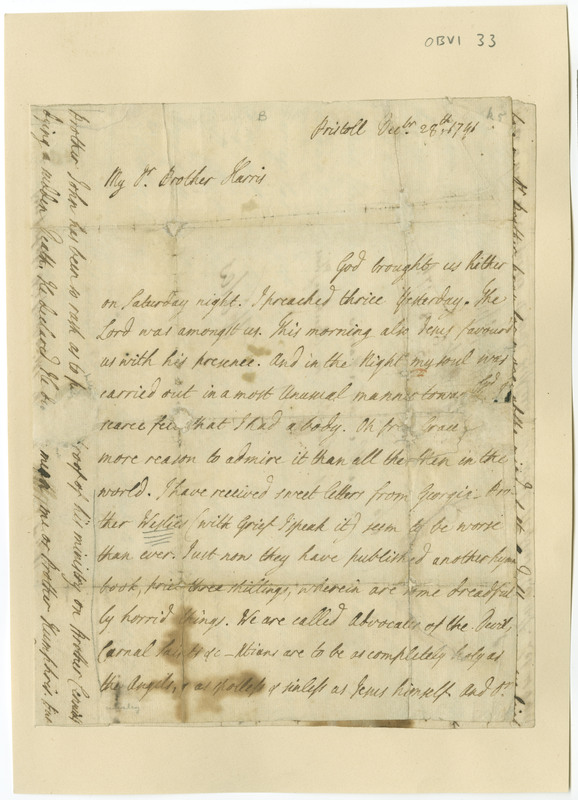 OBVI 33
B
Bristoll Decbr. 28th. 1741
My Dr. Brother Harris
God brought us hither
on Saturday night. I preached thrice Yesterday. The
Lord was amongst us. This morning also Jesus favour'd
us with his presence. And in the Night my soul was
carried out in a most Unusual manner towards God. I
scarce felt that I had a body. Oh free Grace
more reason to admire it than all the Men in the
world. I have received sweet letters from Georgia. Bro-
ther Weslies (with Grief I speak it) seem to be worse
than ever. Just now they have published another hymn
book, price three shillings, wherein are some dreadful
ly horrid things. We are called Advocates of the Devil,
Carnal Saints &c are to be as completely holy as
the Angels, & as spotless & sinless as Jesus himself. And Dr.
Brother John has been so rash as to
proof of his ministry on Brother Cennick
dying a sudden Death. He declared He
me or Brother Humphris. But